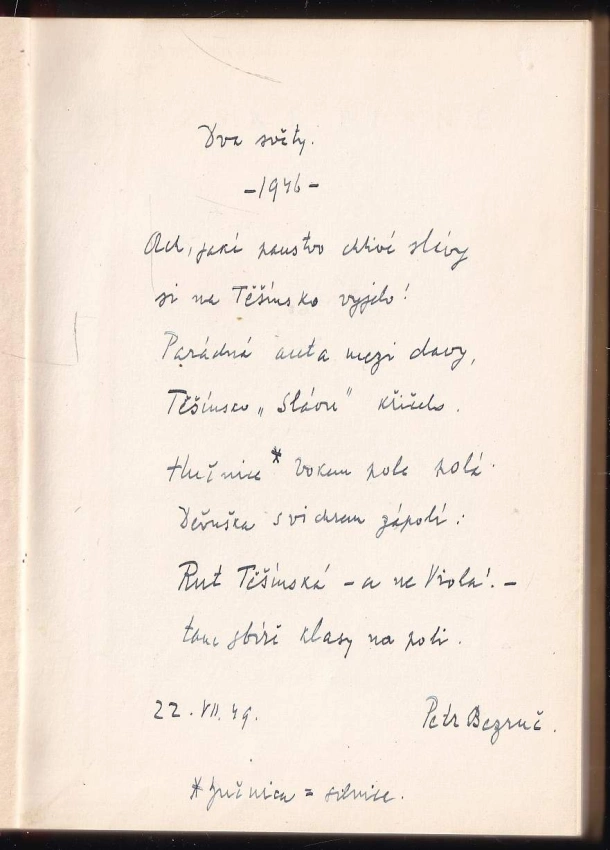 Dva světy.
- 1946 -
Ach, jaké panstvo chtivé slávy
si na Těšínsko vyjelo!
Parádná auta mezi davy,
Těšínsko „Slávu" křičelo.
Hučnice * bokem pole polá.
Děvuška s vichrem zápolí:
Rut Těšínská - a ne Viola! -
tam sbírá klasy na poli.
22. VII. 49.
Petr Bezruč.
* hučnica = silnice.